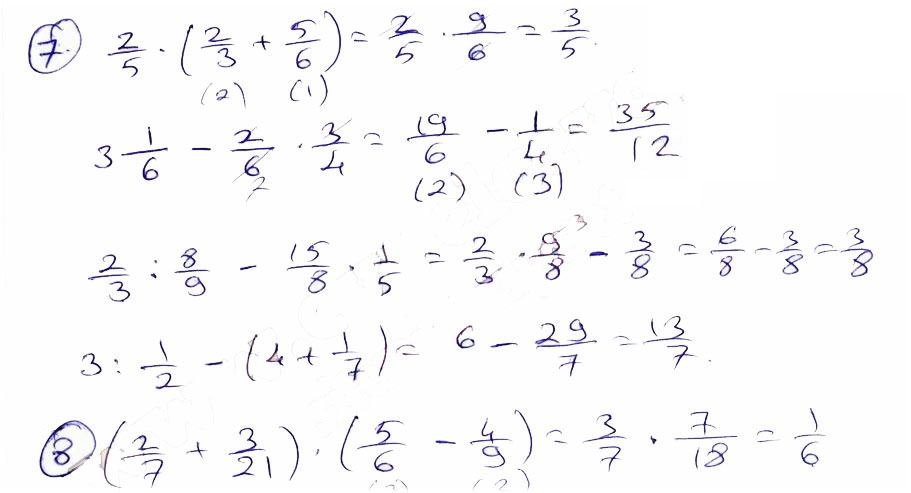 7. 2/5 · (2/3 + 5/6) = 2/5 · 9/6 = 3/5.
(2) (1)
3 1/6 - 2/6 · 3/4 = 19/6 - 1/4 = 35/12
2 (2) (3)
2/3 : 8/9 - 15/8 · 1/5 = 2/3 · 9/8 - 3/8 = 6/8 - 3/8 = 3/8
3
3 : 1/2 - (4 + 1/7) = 6 - 29/7 = 13/7.
8 (2/7 + 3/21) · (5/6 - 4/9) = 3/7 · 7/18 = 1/6